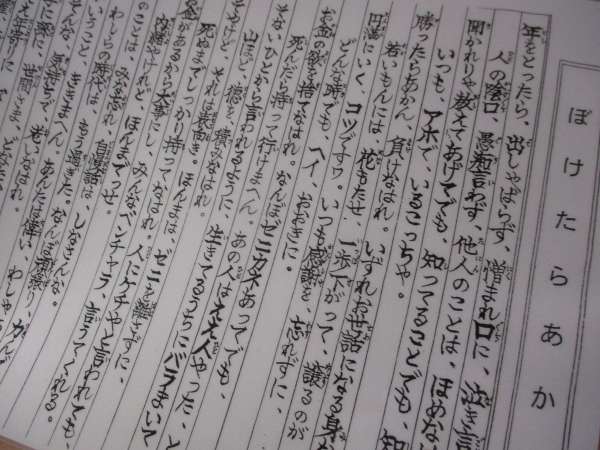 ぼけたらあか
年をとったら、出しゃばらず、憎まれ口に、泣き言
人の陰口、愚痴言わず、他人のことは、ほめな
聞かれりゃ教えてあげてでも、知ってることでも、知
いつも、アホで、いるこっちゃ。
勝ったらあかん、負けなはれ。いずれお世話になる身
若いもんには 花もたせ、一歩下がって、譲るのが
円満にいく、コツですワ。いつも感謝を、忘れずに、
どんな時でも、ヘイ、おおきに。
お金の欲を捨てなはれ。なんぼゼニカネあってでも、
死んだら持って行けまへん。あの人はええ人やった、と
そないひとから言われるように、生きてるうちにバラまいて
山ほど、徳を積みなはれ。
そやけど、それは表向き。ほんまは、ゼニを離さずに、
死ぬまでしっかり持ってなはれ 人にケチやと言われても、
お金があるから大事にし、みんなベンチャラ、言うてくれる。
内緒やけれど、ほんまでっせ。
のことは、みな忘れ、自慢話は、しなさんな。
わしらの時代は、もう過ぎた。なんぼ頑張り、がんば
いうこと、ききまへん。あんたは偉い、わしゃ
そんな、気持ちで、おいなはれ。